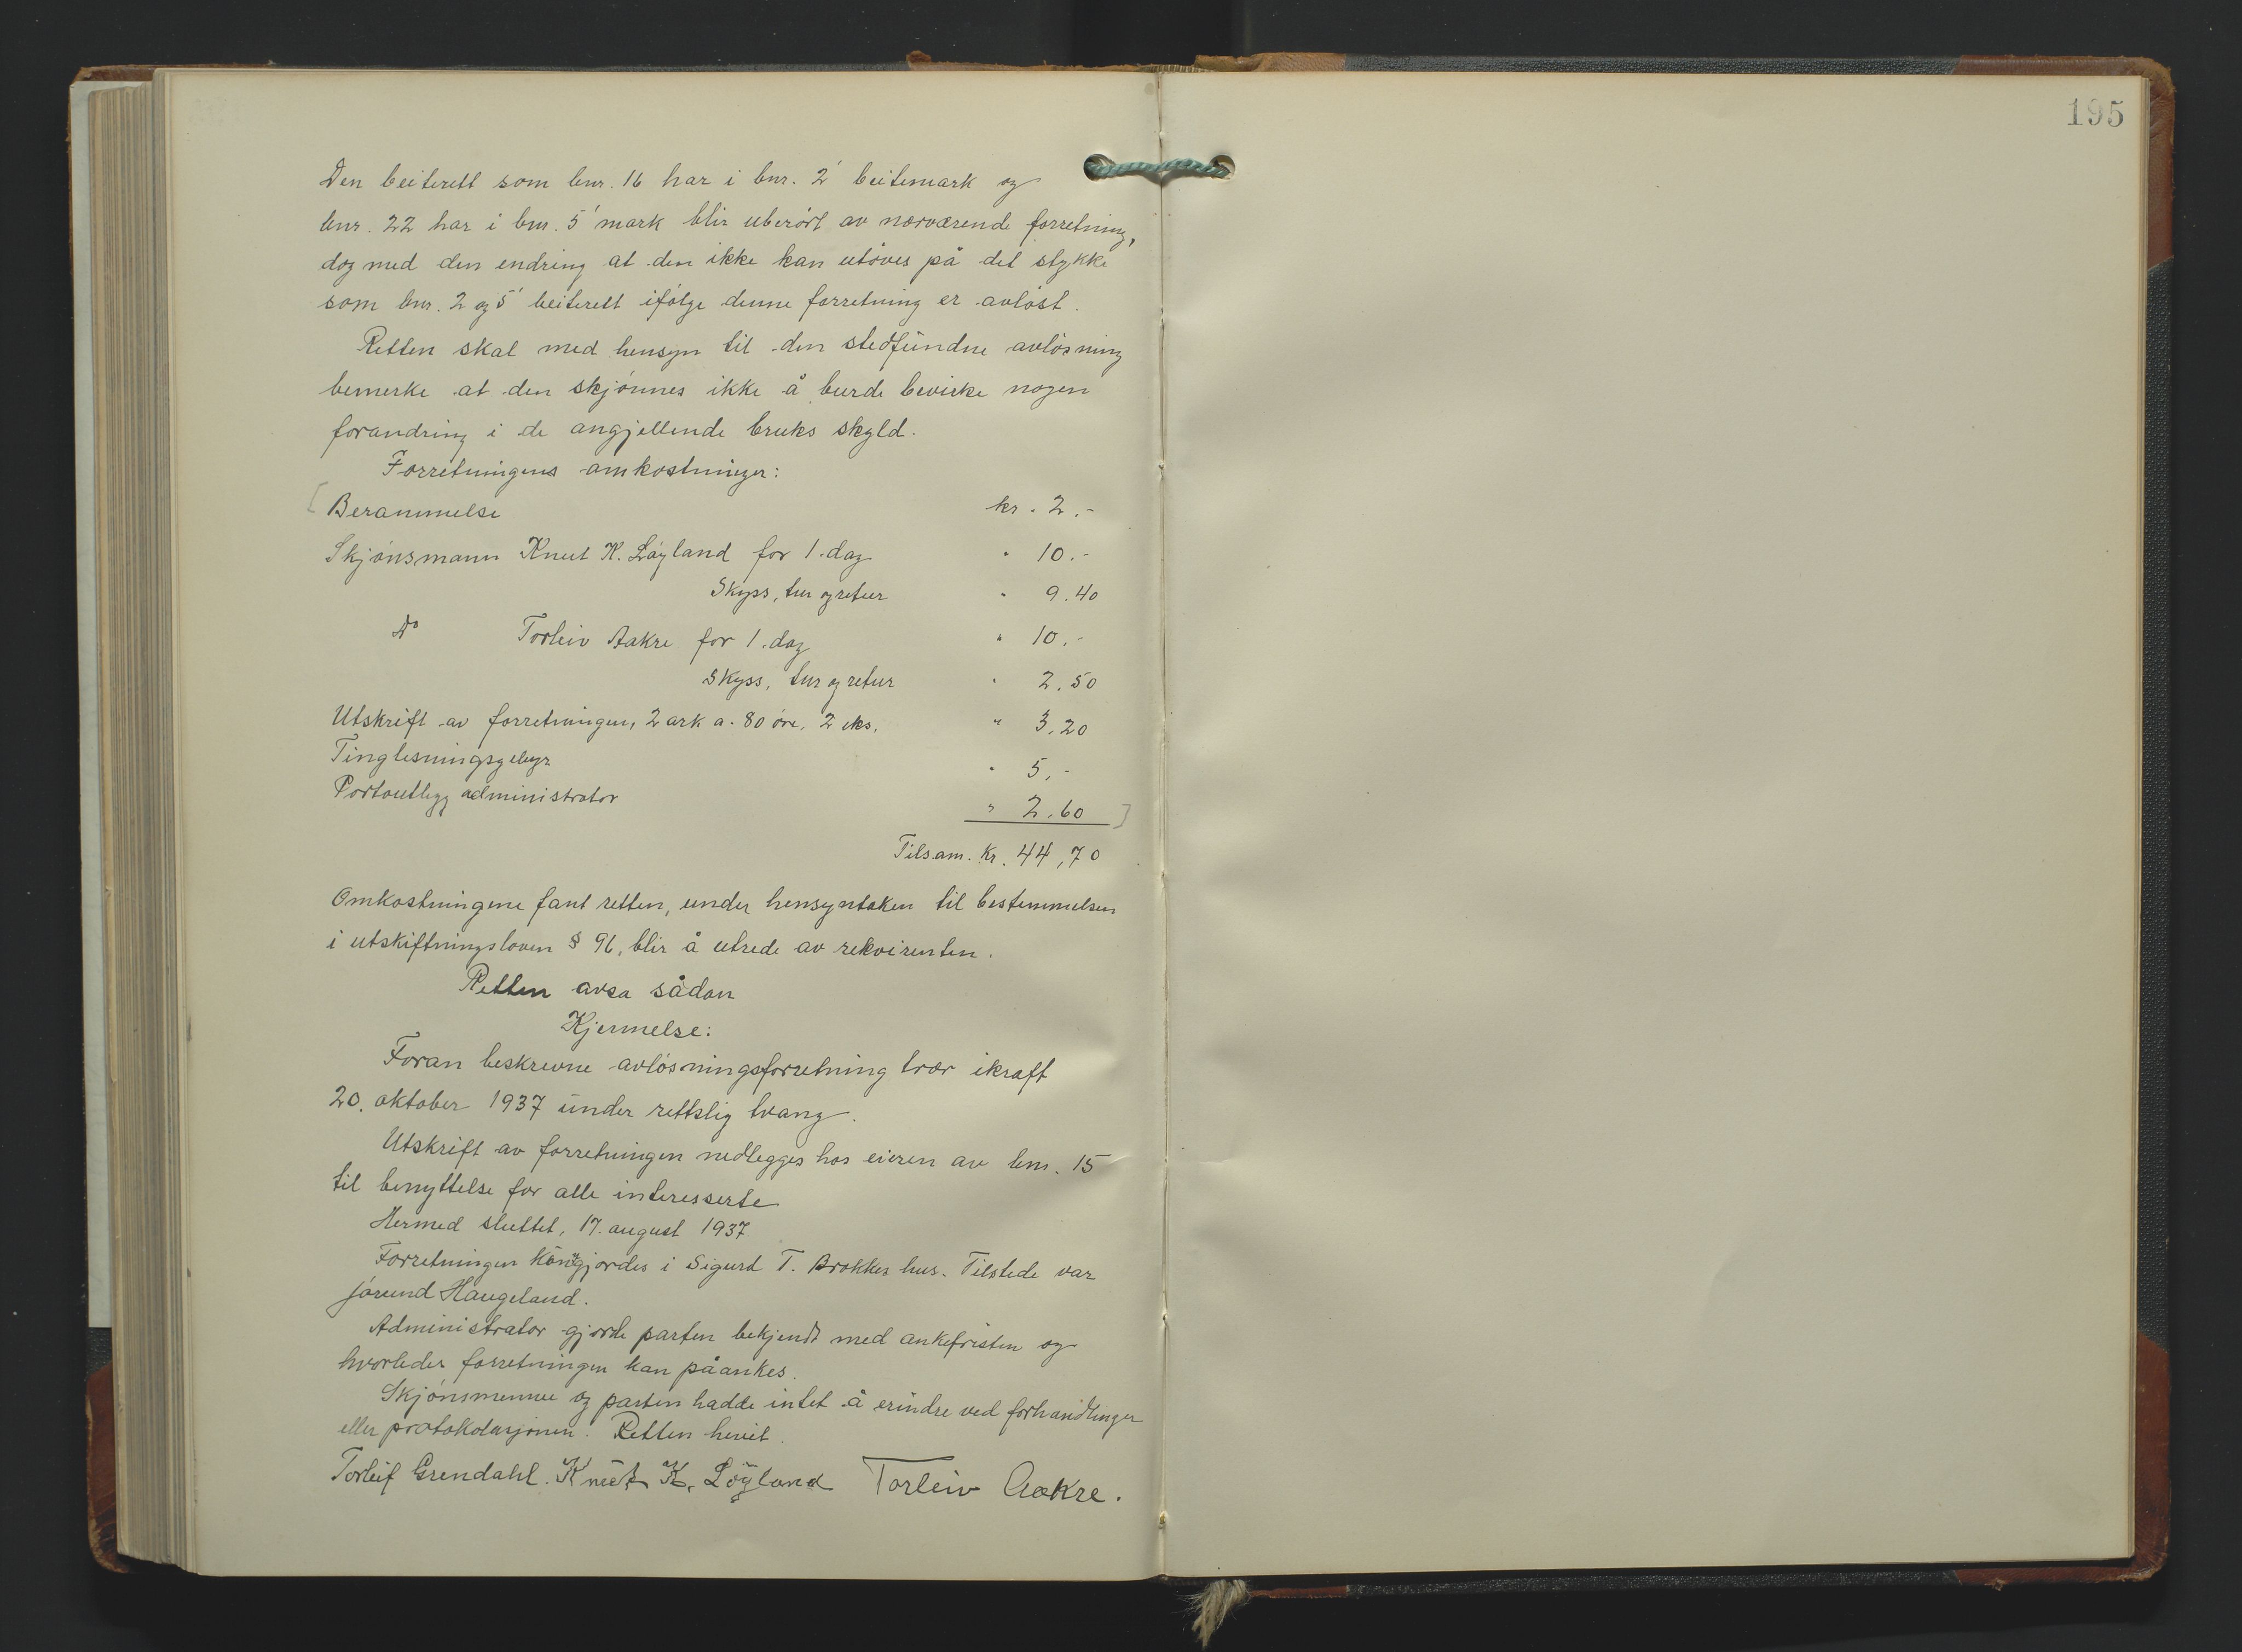 Den beiterett som bnr. 16 har i bnr. 2' beitemark og
bnr. 22 har i bnr. 5' mark blir uberört av nærværende forretning,
dog med den endring at den ikke kan utöves på det stykke
som bnr. 2 og 5' beiterett ifölge denne forretning er avlöst.
Retten skal med hensyn til den stedfundne avlösning
bemerke at den skjönnes ikke å burde bevirke nogen
forandring i de angjellende bruks skyld.
Forretningens omkostninger:
[Berammelse kr. 2.-
Skjönsmann Knut K. Löyland for 1 dag " 10.-
Skyss, tur og retur " 9.40
Do Torleiv Aakre for 1 dag " 10.-
Skyss, tur og retur " 2.50
Utskrift av forretningen, 2 ark a. 80 öre, 2 eks. " 3,20
Tinglesningsgebyr " 5,-
Portoutlegg administrator " 2.60]
Tilsam. Kr. 44,70
Omkostningene fant retten, under hensyntaken til bestemmelsen
i utskiftningsloven § 96, blir å utrede av rekvirenten.
Retten avsa sådan
Kjennelse:
Foran beskrevne avlösningsforretning trær ikraft
20. oktober 1937 under rettslig tvang.
Utskrift av forretningen nedlegges hos eieren av bnr. 15
til benyttelse for alle interesserte
Hermed sluttet, 17. august 1937
Forretningen kungjordes i Sigurd T. Brokkes hus. Tilstede var
Jörund Haugeland.
Administrator gjorde parten bekjendt med ankefristen og
hvorledes forretningen kan påankes.
Skjönsmennene og parten hadde intet å erindre ved forhandlingen
eller protokolasjonen. Retten hevet.
Torleif Grendahl. Knut K. Löyland Torleiv Aakre.
195